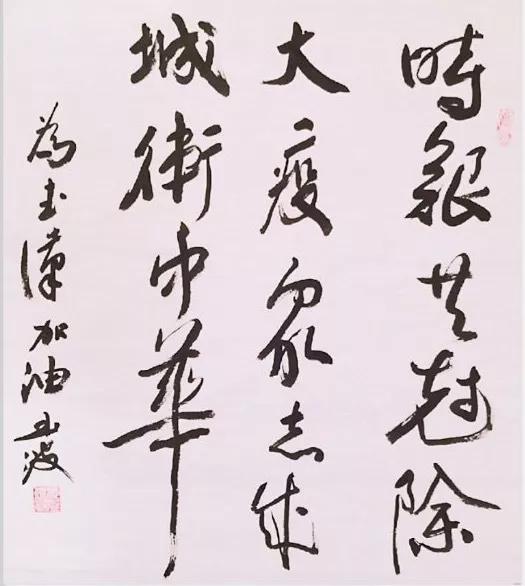 時艱共尅除
大疫眾志成
城衛中華
為武漢加油